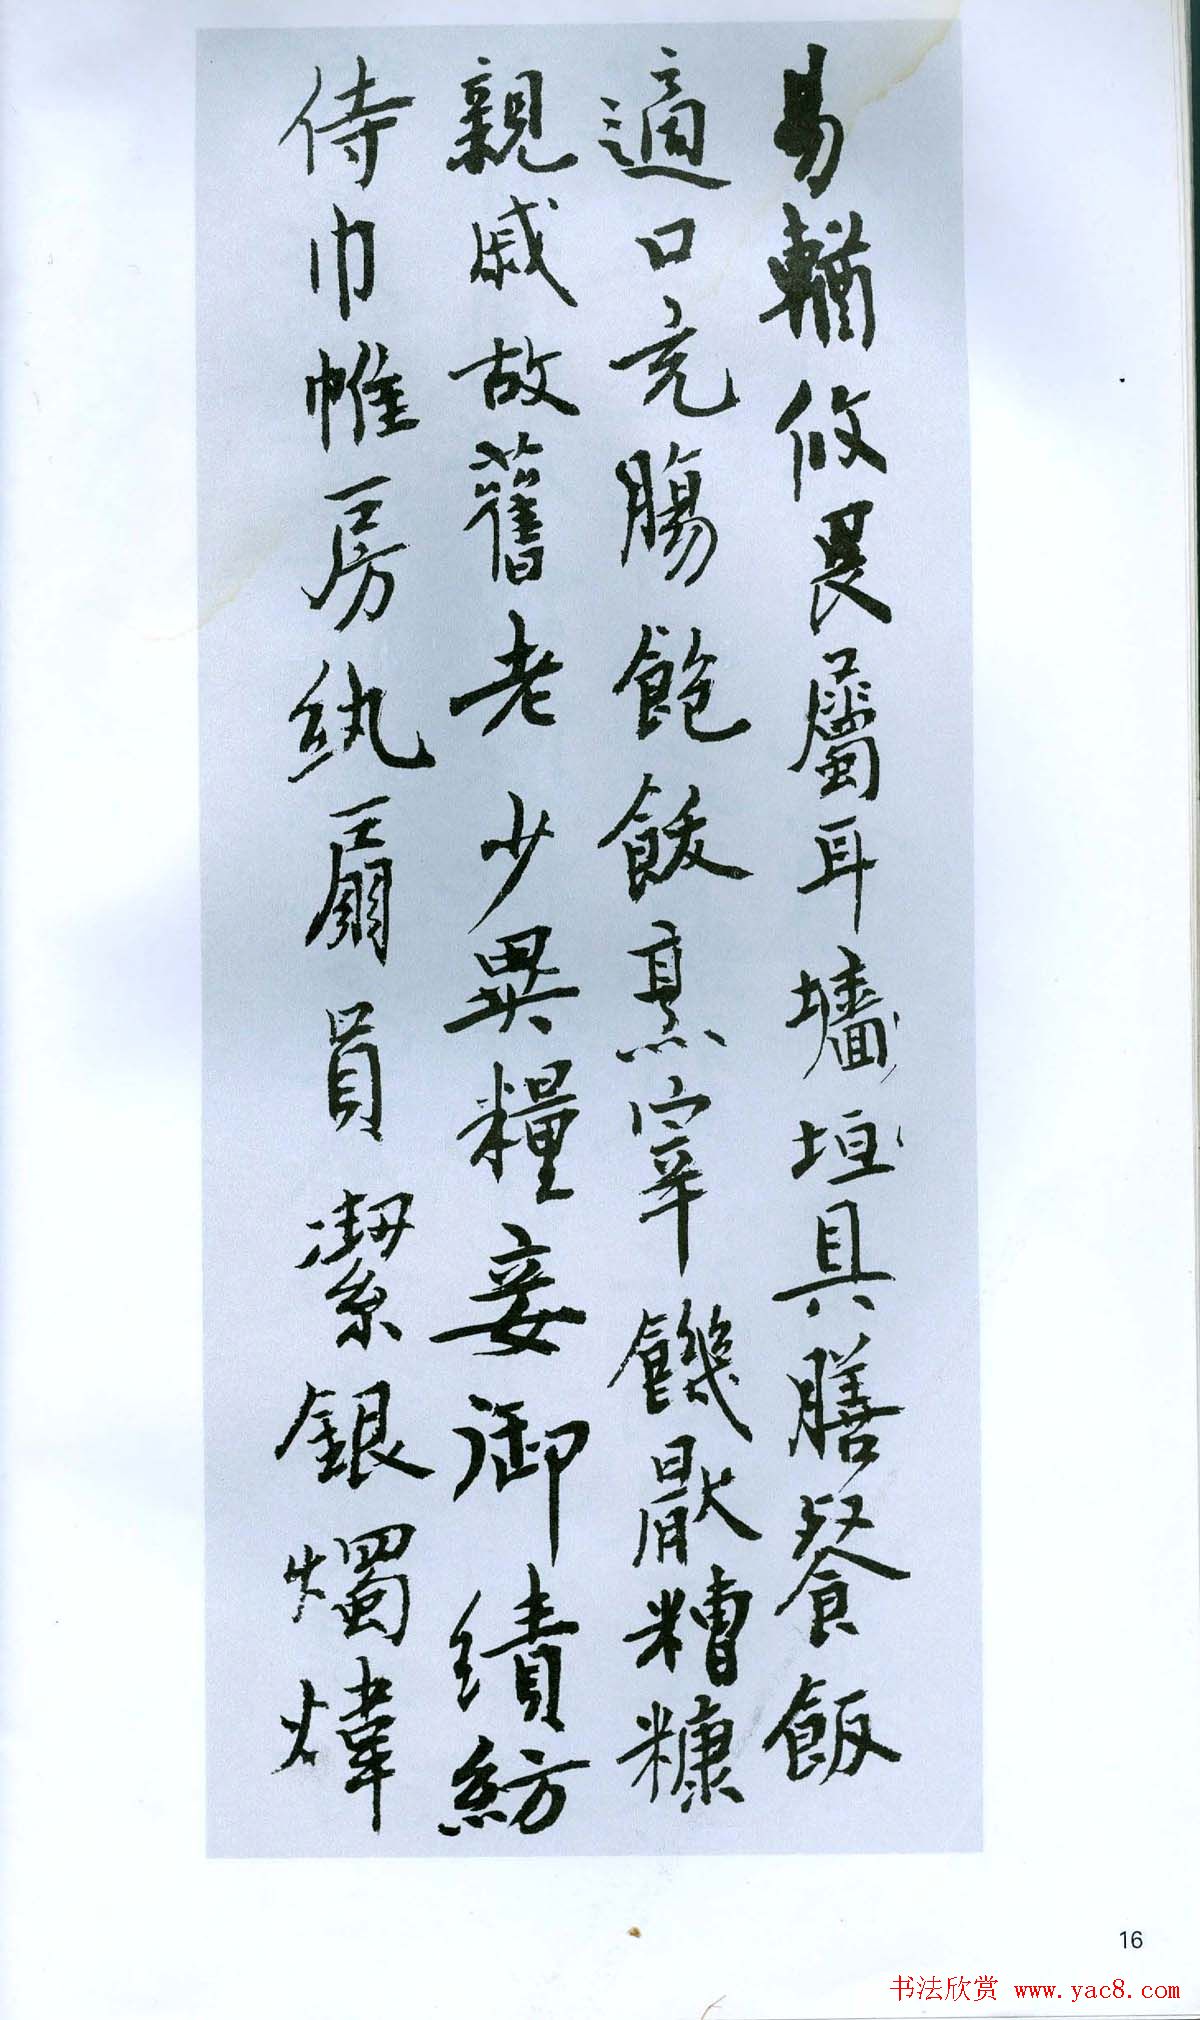 易輶攸畏屬耳墻垣具膳餐飯
適口充腸飽飫烹宰饑厭糟糠
親戚故舊老少異糧妾御績紡
侍巾帷房紈扇員潔銀燭煒
16
书法欣赏 www.yac8.com